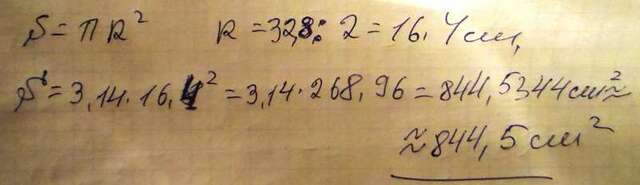 S = πR² R = 32,8 : 2 = 16,4 см,
S = 3,14 · 16,4² = 3,14 · 268,96 = 844,5344 см² ≈
≈ 844,5 см²